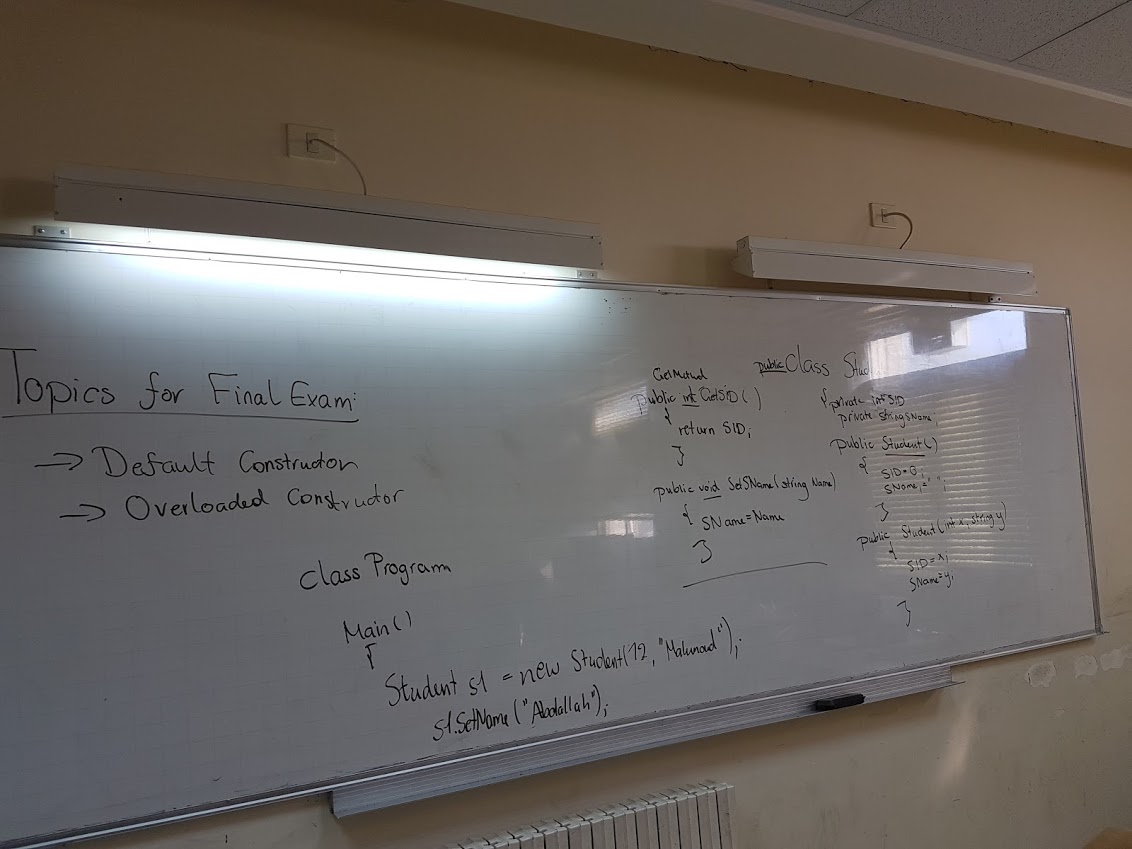 Topics for Final Exam:
→ Default Constructor
→ Overloaded Constructor
class Program
Main()
{
Student s1 = new Student(12, "Mahmoud");
s1.SetName("Abdallah");
Get Method
public int GetSID()
{
return SID;
}
public void SetSName(string Name)
{
SName=Name
}
public Class Stud
{private int SID
private string SName;
public Student()
{
SID=0;
SName=" ";
}
public Student(int x, string y)
{
SID=x;
SName=y;
}